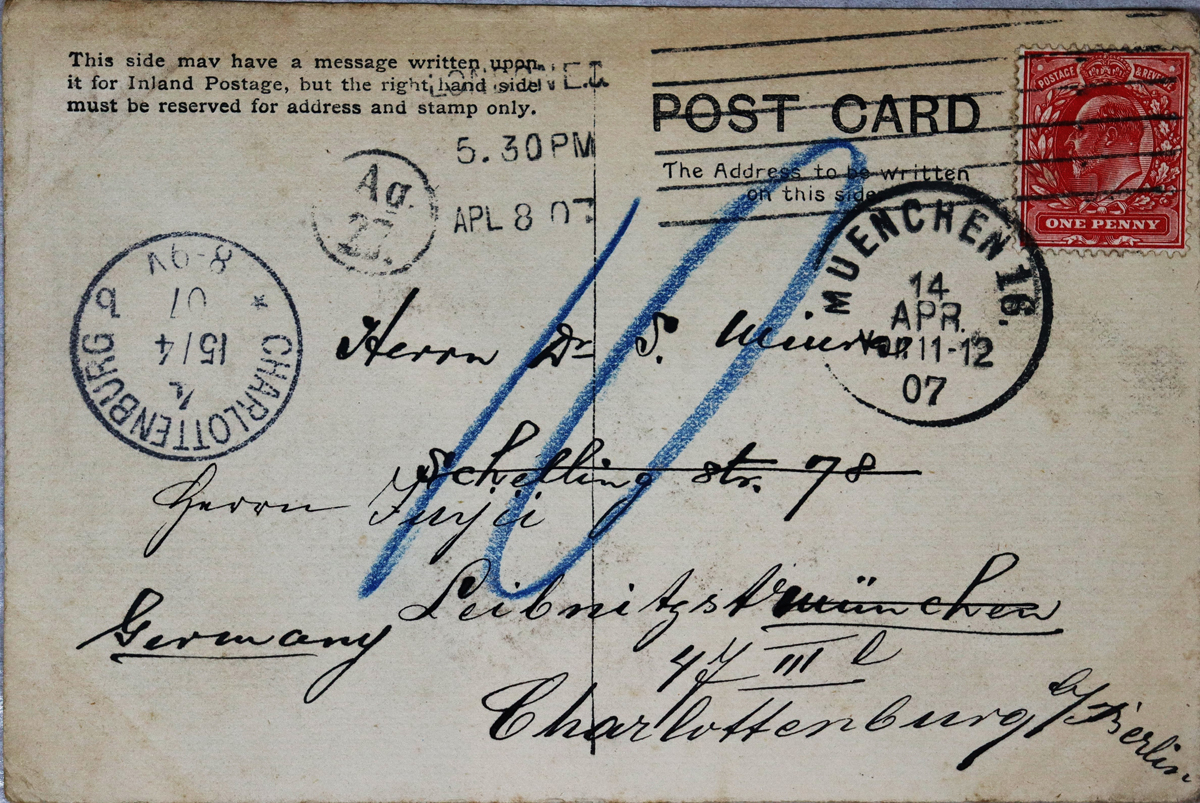 This side may have a message written upon
it for Inland Postage, but the right hand side
must be reserved for address and stamp only.
LONDON N.E.
5.30PM
APL 8 07
POST CARD
The Address to be written
on this side
POSTAGE & REVENUE
ONE PENNY
Ag.
27.
MUENCHEN 16.
14
APR.
Vor. 11-12
07
CHARLOTTENBURG 2
15/4
07
8-9V
10
Herrn Dr S.
Schelling str. 78
Herrn Fujii
Leibnitzstr München
Germany
47 III l
Charlottenburg b/Berlin